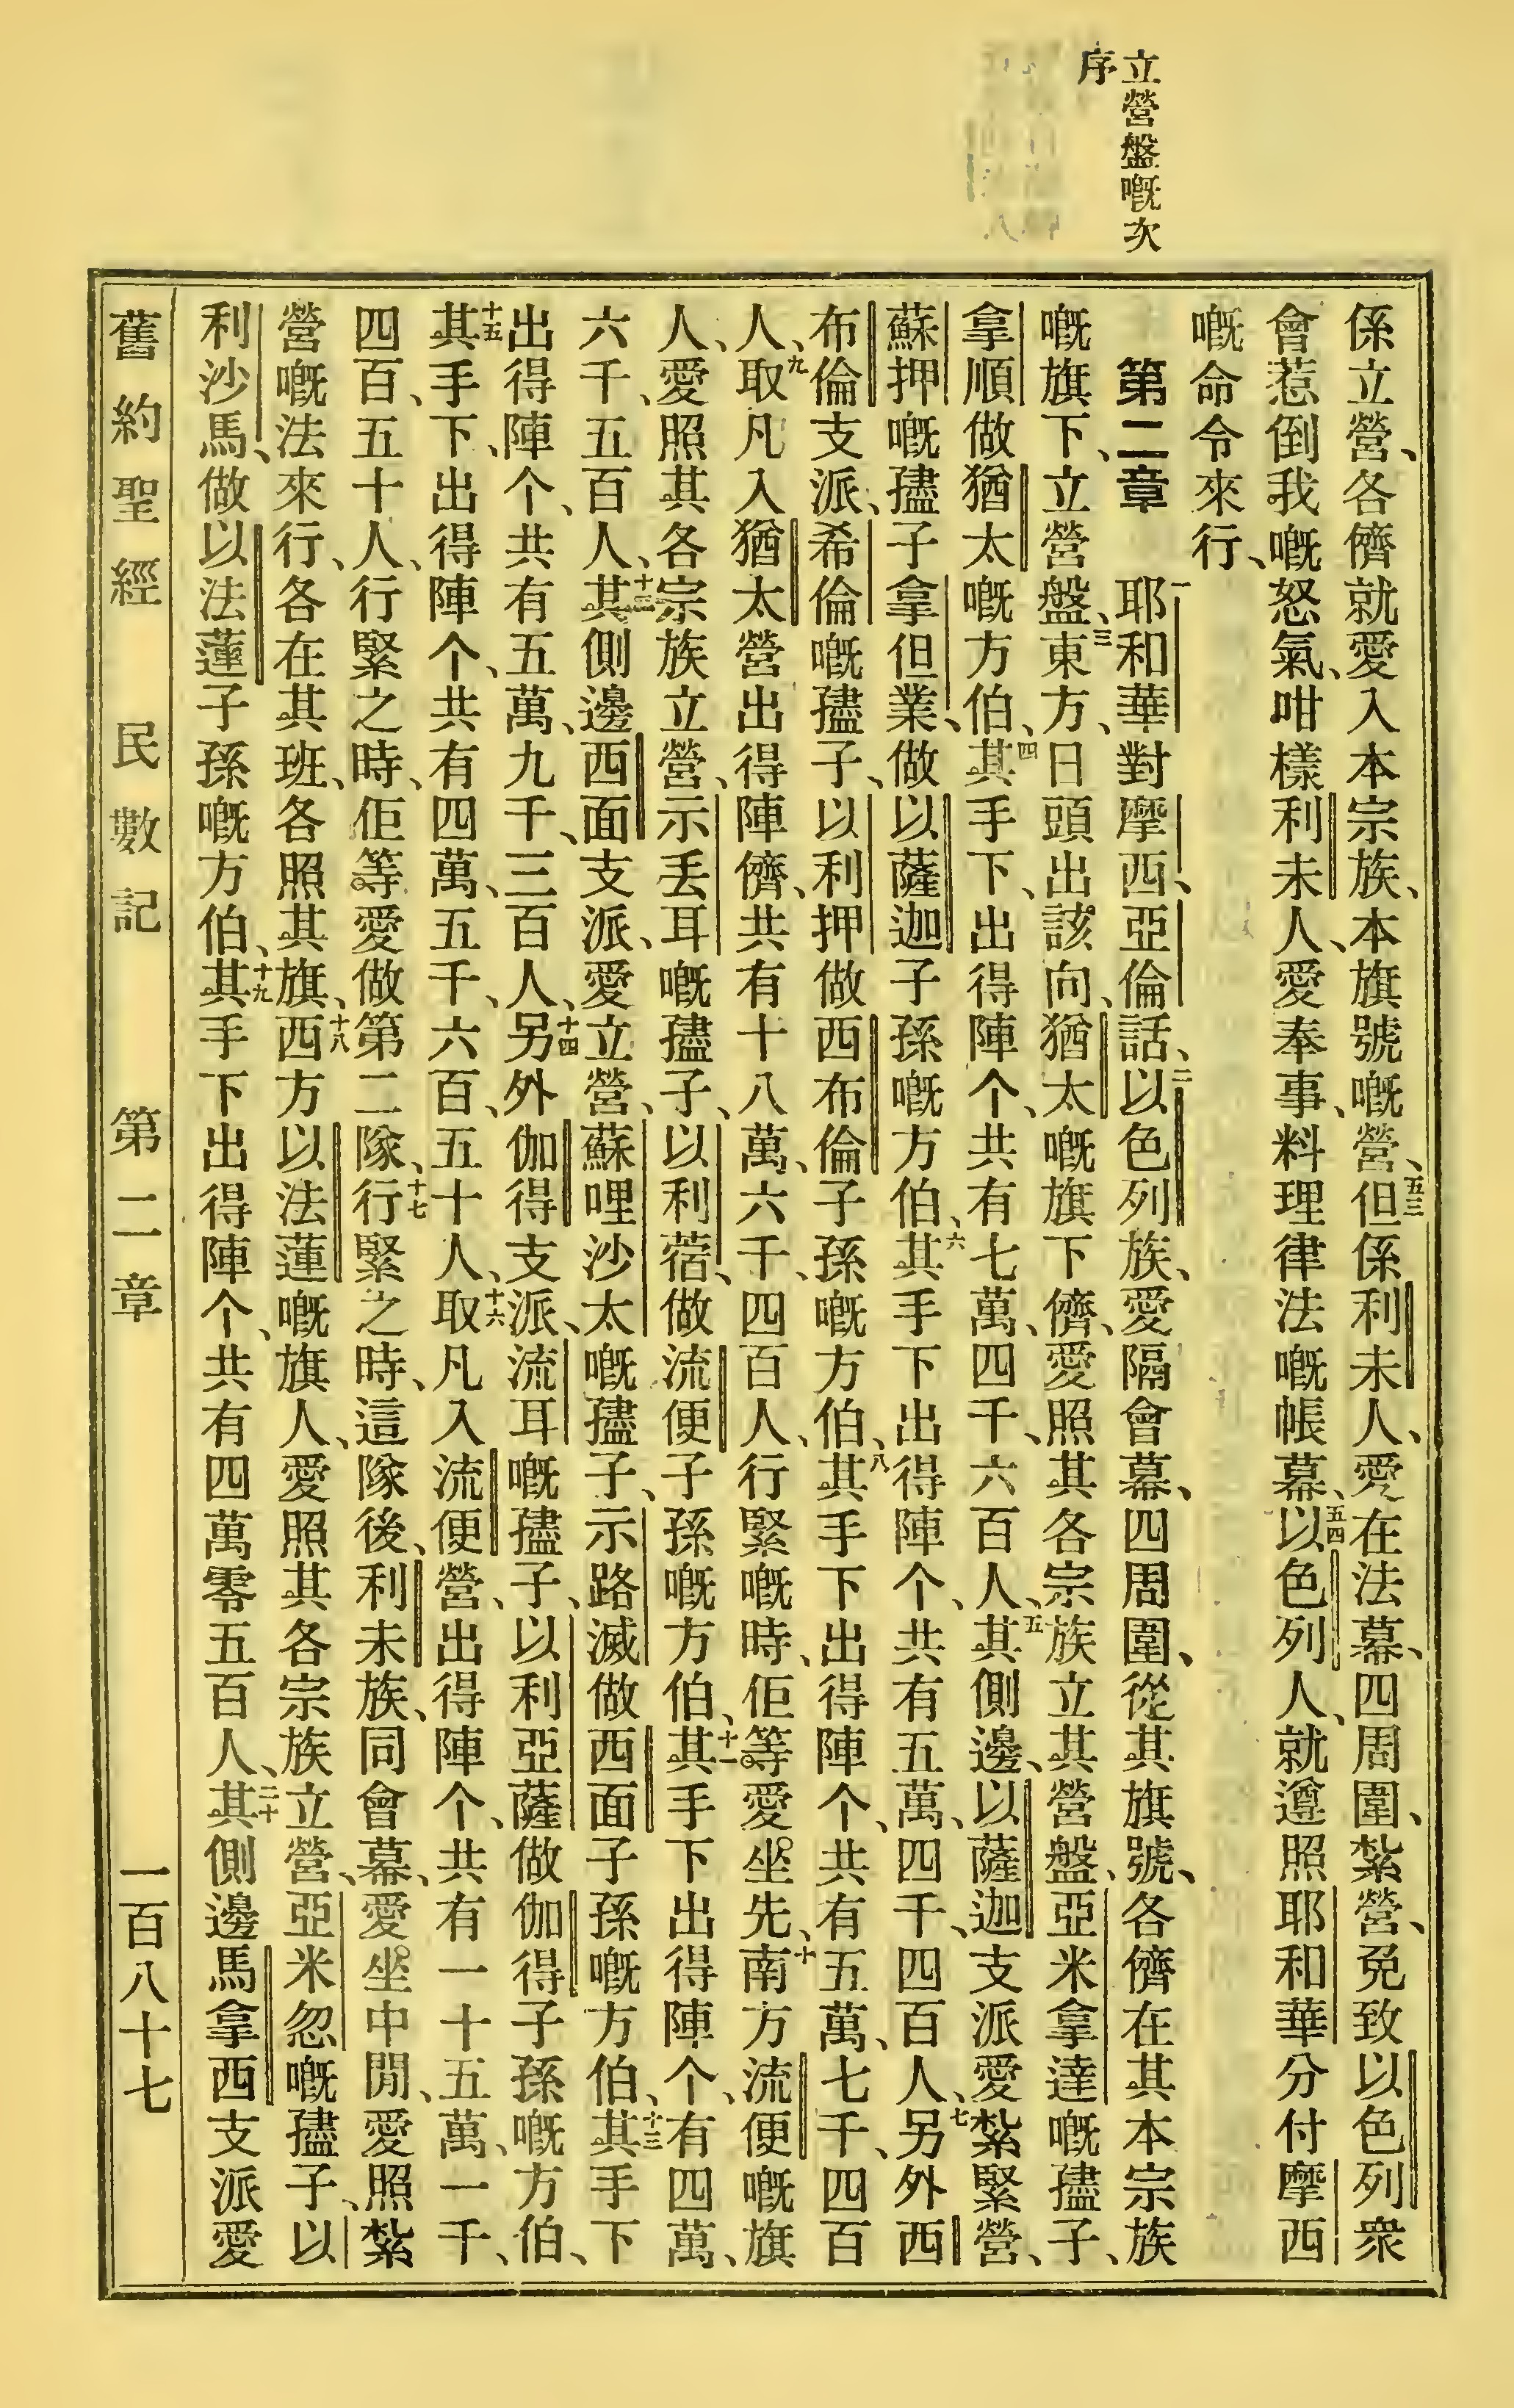 立營盤嘅次
序
係立營、各儕就愛入本宗族、本旗號嘅營、五三但係利未人、愛在法幕、四周圍、紮營、免致以色列衆
會惹倒我嘅怒氣、咁樣利未人、愛奉事、料理律法嘅帳幕、五四以色列人、就遵照耶和華分付摩西
嘅命令來行、
第二章 一耶和華對摩西、亞倫話、二以色列族、愛隔會幕、四周圍、從其旗號、各儕在其本宗族
嘅旗下、立營盤、三東方、日頭出該向、猶太嘅旗下儕、愛照其各宗族立其營盤、亞米拿達嘅孻子、
拿順做猶太嘅方伯、四其手下、出得陣个、共有七萬、四千、六百人、五其側邊、以薩迦支派愛紮緊營、
蘇押嘅孻子拿但業、做以薩迦子孫嘅方伯、六其手下出得陣个、共有五萬、四千、四百人、七另外西
布倫支派、希倫嘅孻子、以利押做西布倫子孫嘅方伯、八其手下出得陣个、共有五萬、七千、四百
人、九取凡入猶太營出得陣儕、共有十八萬、六千、四百人、行緊嘅時、佢等愛坐先、十南方流便嘅旗
人、愛照其各宗族立營、示丟耳嘅孻子、以利蓿、做流便子孫嘅方伯、十一其手下出得陣个、有四萬、
六千、五百人、十二其側邊西面支派、愛立營、蘇哩沙太嘅孻子、示路滅做西面子孫嘅方伯、十三其手下
出得陣个、共有五萬、九千、三百人、十四另外伽得支派、流耳嘅孻子、以利亞薩做伽得子孫嘅方伯、
十五其手下、出得陣个、共有四萬、五千、六百、五十人、十六取凡入流便營、出得陣个、共有一十五萬、一千、
四百、五十人、行緊之時、佢等愛做第二隊、十七行緊之時、這隊後、利未族、同會幕、愛坐中閒、愛照紮
營嘅法來行、各在其班、各照其旗、十八西方以法蓮嘅旗人、愛照其各宗族立營、亞米忽嘅孻子、以
利沙馬、做以法蓮子孫嘅方伯、十九其手下出得陣个、共有四萬零五百人、二十其側邊馬拿西支派愛
舊約聖經 民數記 第二章 一百八十七